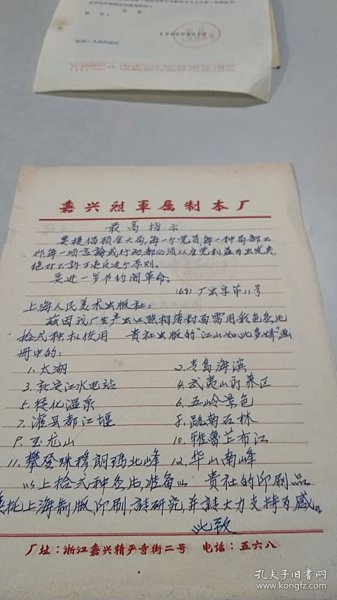 嘉兴烈军属制本厂
最高指示
要提倡顾全大局。每一个党员，每一种局部工
作，每一项言论或行动，都必须从全党利益为出发点，
绝对不许可违反这个原则。
要进一步节约闹革命。
(68)厂出字第11号
上海人民美术出版社：
兹因我厂生产出口照相簿封面需用彩色
拾弍种拟使用 贵社出版的"江山如此多娇"画
册中的：
1.太湖
2.青岛海滨
3.新安江水电站
4.武夷山
5.从化温泉
6.五岭景色
7.灌县都江堰
8.路南石林
9.玉龙山
10.雅鲁芷布江
11.攀登珠穆朗玛北峰
12.华山南峰
以上拾弍种 准备以 贵社的印刷品
委托上海制版印刷，请研究并请大力支持为感。
此致
厂址：浙江嘉兴精严寺街二号 电话：五六八
孔夫子旧书网